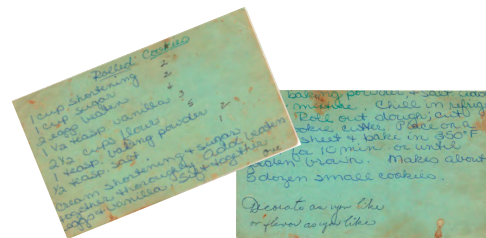 Rolled Cookies
1 cup shortening 2
1 cup sugar 2
2 eggs beaten 4
1 1/2 teasp. vanilla 3
2 1/2 cups flour 5
1 teasp. baking powder 2
1/2 teasp. salt 1
Cream shortening & sugar
together thoroughly. Add beaten
eggs & vanilla, Sift together
over
baking powder & salt
mixture. Chill in
Roll out dough; cut
cookie cutter. Place on a
sheet & bake in 350°F
10 min or until
golden brown. Makes about
8 dozen small cookies.
Decorate as you like
or flavor as you like